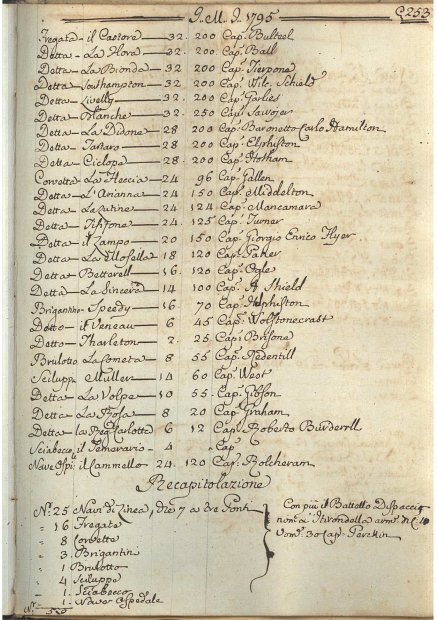 G. M. G. 1795 253
Fregata = il Castore — 32. 200 Cap. Bulteel
Detta — La Flora — 32. 200 Cap. Ball
Detta — La Bionda — 32. 200 Cap. Pierpone
Detta — Southampton — 32. 200 Cap. Wil. Schield
Detta — Livelly — 32. 200 Cap. Garlies
Detta — Blanche — 32. 250 Cap. Sawojer
Detta — La Didone — 28 200 Cap. Baronetto Carlo Hamilton
Detta — Tartaro — 28. 200 Cap. Elphiston
Detta — Ciclope — 28. 200 Cap. Hotham
Corvetta — La Fleccia — 24 96 Cap. Gallen
Detta — L'Arianna — 24 150 Cap. Middelton
Detta — La Lutine — 24 124 Cap. Mancamara
Detta — Tisifone — 24. 125 Cap. Turner
Detta — il Lampo — 20 150 Cap. Giorgio Enrico
Detta — La Mosella — 18 120 Cap. Paker
Detta — Betterell — 16. 120 Cap. Ogle
Detta — La Sincera — 14 100 Cap. Shield
Brigantino — Speedy — 16. 70 Cap.
Detto — il — 6 45 Cap. Wolstonecrast
Detto — Tharleton — 2. 25 Cap. Brisone
Brulotto La Cometa — 8 55 Cap. Redentill
Sciluppa Muller — 14 60 Cap. West
Detta — La Volpe — 10 55 Cap. Gibson
Detta — La Rosa — 8 20 Cap. Graham
Detta — la Reg. Carlotta — 6 12 Cap. Roberto Burderell
Sciabecco il Temerario — 4 — Cap.
Nave Ospi. il Cammello — 24. 120 Cap. Rolcheram
Recapitolazione
N.° 25 Navi di Linea, die 7 a tre Ponti
" 16 Fregate
" 8 Corvette
" 3. Brigantini
" 1 Brulotto
" 4 Sciluppe
" 1. Sciabecco
" 1. Nave Ospedale
Con più il Battello Dispaccio
nom. a Hirondella arm. di C. 10
Uom. 30 Cap. Perckin